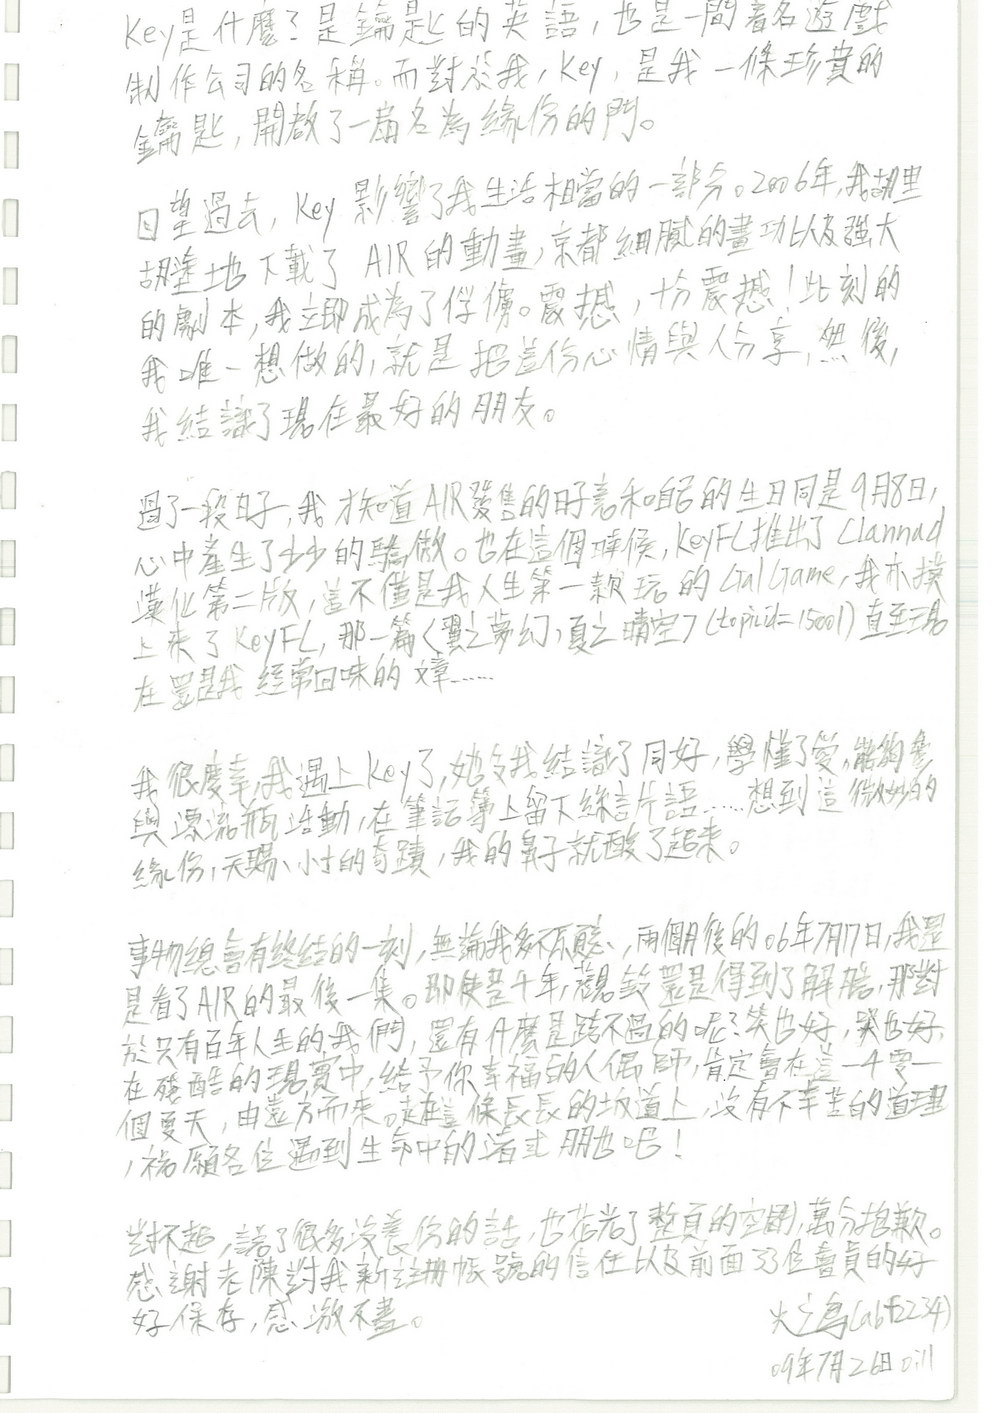 Key是什麼？是鑰匙的英語，也是一間著名遊戲
制作公司的名稱。而對於我，Key，是我一條珍貴的
鑰匙，開啟了一扇名為緣份的門。
回望過去，Key 影響了我生活相當的一部分。2006年，我胡里
胡塗地下載了 AIR 的動畫，京都細膩的畫功以及強大
的劇本，我立即成為了俘虜。震撼，十分震撼！此刻的
我唯一想做的，就是把這份心情與人分享，然後，
我結識了現在最好的朋友。
過了一段日子，我才知道AIR發售的日子竟和自己的生日同是9月8日，
心中產生了少少的驕傲。也在這個時候，KeyFC推出了Clannad
漢化第二版，這不僅是我人生第一款玩的GalGame，我亦摸
上來了KeyFC，那一篇〈翼之夢幻，夏之晴空〉(topicid=15001)直至現
在還是我經常回味的文章……
我很慶幸，我遇上Key了，她令我結識了同好，學懂了愛，能夠參
與漂流瓶活動，在筆記簿上留下絲言片語……想到這微妙的
緣份，天賜小小的奇蹟，我的鼻子就酸了起來。
事物總會有終結的一刻，無論我多不願意，兩個月後的06年7月17日，我還
是看了AIR的最後一集。即使是千年，觀鈴還是得到了解脫，那對
於只有百年人生的我們，還有什麼是跨不過的呢？笑也好，哭也好，
在殘酷的現實中，給予你幸福的人偶師，肯定會在這一千零一
個夏天，由遠方而來。走在這條長長的坂道上，沒有不辛苦的道理
，祝願各位遇到生命中的渚或朋也吧！
對不起，諾了很多沒養份的話，也花光了整頁的空間，萬分抱歉。
感謝老陳對我新註冊帳號的信任以及前面33位會員的好
好保存，感激不盡。
火之鳥(abf2234)
09年7月26日 0:11